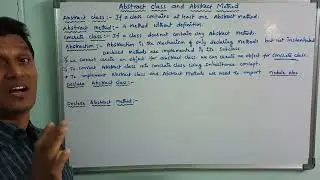 Abstract Class and Abstract Method
Abstract Class :- If a Class contains at least one Abstract Method.
Abstract Method :- A Method without definition.
Concrete Class :- If a class doesnot contain any Abstract Methods.
Abstraction :- Abstraction is the Mechanism of only declaring Methods but not Instantiated
Methods are implemented in its Subclass.
we cannot create an object for abstract class. we can create an object for Concrete Class.
To convert Abstract Class into Concrete Class using Inheritance concept.
To implement Abstract Class and Abstract Methods we need to import Module abc
Declare Abstract Class :-
Declare Abstract Method :-